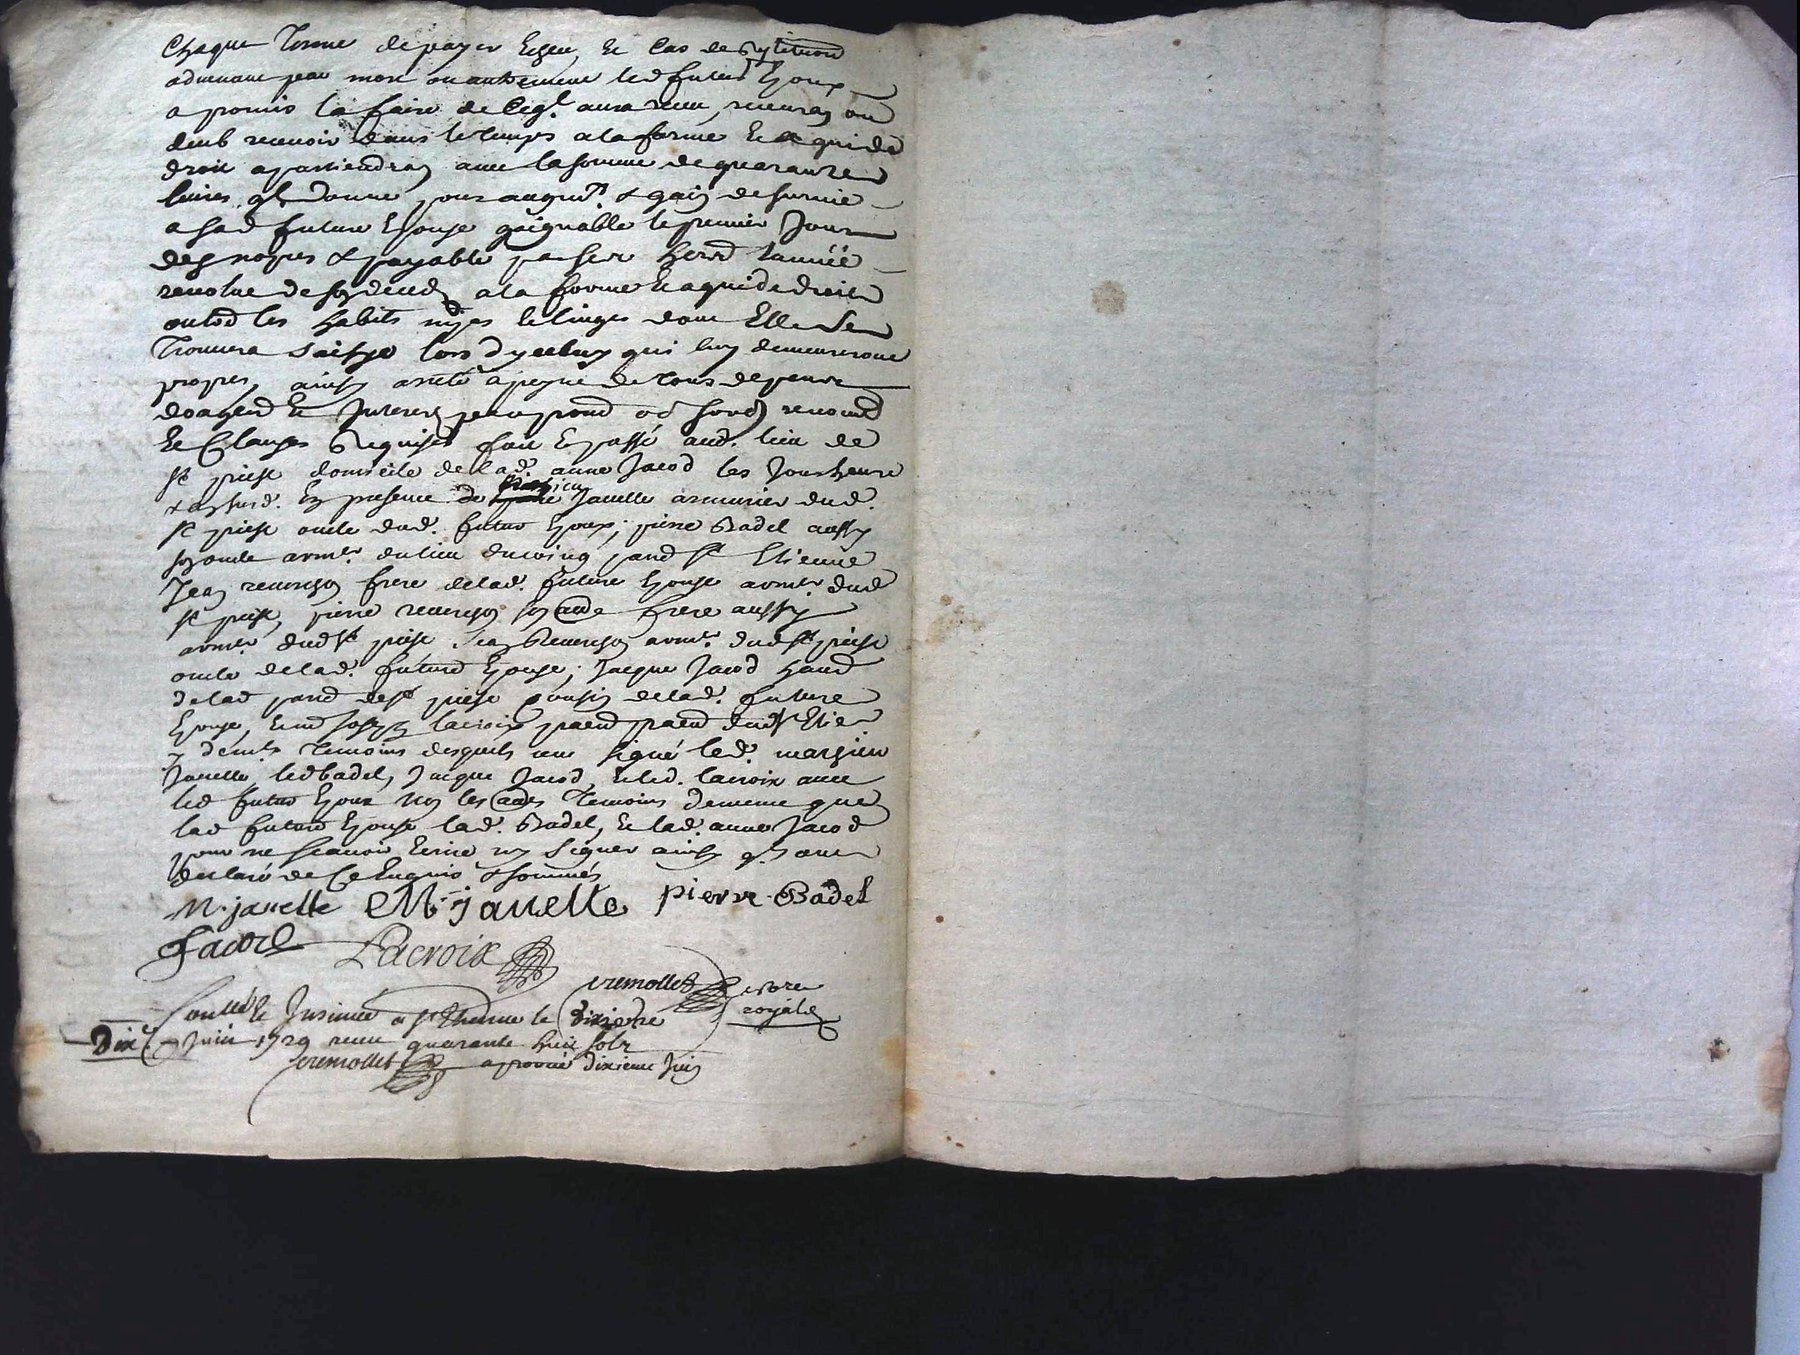 Chaque terme de payer echeu, Et Cas de restitution
advenant par mort ou autrement led futur Epoux
a promis la faire de Ceql. aura receu, recevra ou
deub recevoir dans le temps a la forme Et a qui de
droit apartiendra avec la somme de quarante
livres ql donne pour augmt. & gain de survie
a sad future Epouse gaignable le premier Jour
des nopces & payable par ses hers l'année
revolue de son deceds a la forme Et a qui de droit
outre les habits Et linges dont Elle se
trouvera saisye lors d'yceluy qui luy demeureront
propres, ainsy aresté a peyne de tous depens
domages Et Interest
Et Clauses Requises fait Et passé aud. lieu de
st priest domicile de lad. anne Jacod les Jour heure
& an susd. En presence de mathieu Javelle armurier dud.
st priest oncle dud. futur Epoux; pierre Badel aussy
son oncle armr. du lieu du coing parr st Etienne
Jean revergon frere delad. future Epouse armr. dud
st priest, pierre revergon son aude frere aussy
armr dud st priest Jean Revergon armr. dud st priest
oncle delad. future Epouse; Jacque Jacod
delad parr de st priest cousin delad. future
Epouse, lacroix dud st Etie
temoins desquels ont signé led. mathieu
Javelle, led badel, Jacque Jacod, Et led. lacroix avec
led futur Epoux non les temoins de meme que
lad future Epouse lad. Badel, Et lad. anne Jacod
pour ne scavoir Ecrire ny signer ainsy qls ont
declaré de Ce Enquis & sommés
M. javelle M. javelle pierre Badel
Jacod Lacroix
cremollet nore
royal
Controllé Et Insinué a st Etienne le dixieme
Dixe Juin 1729 receu quarante huit sols
cremollet aprouvé dixieme Juin